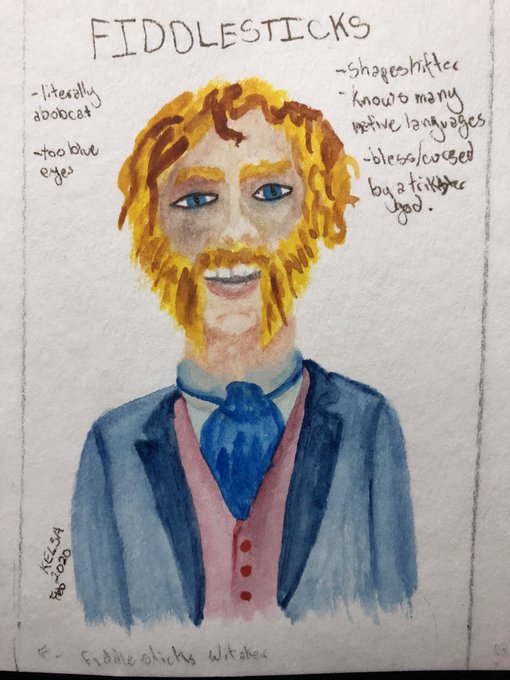 FIDDLESTICKS
-literally
a bobcat
-too blue
eyes
-Shapeshifter
-knows many
native languages
-bless/cursed
by a trickster
god.
KELSA
Feb-2020
F. Fiddlesticks Witaker